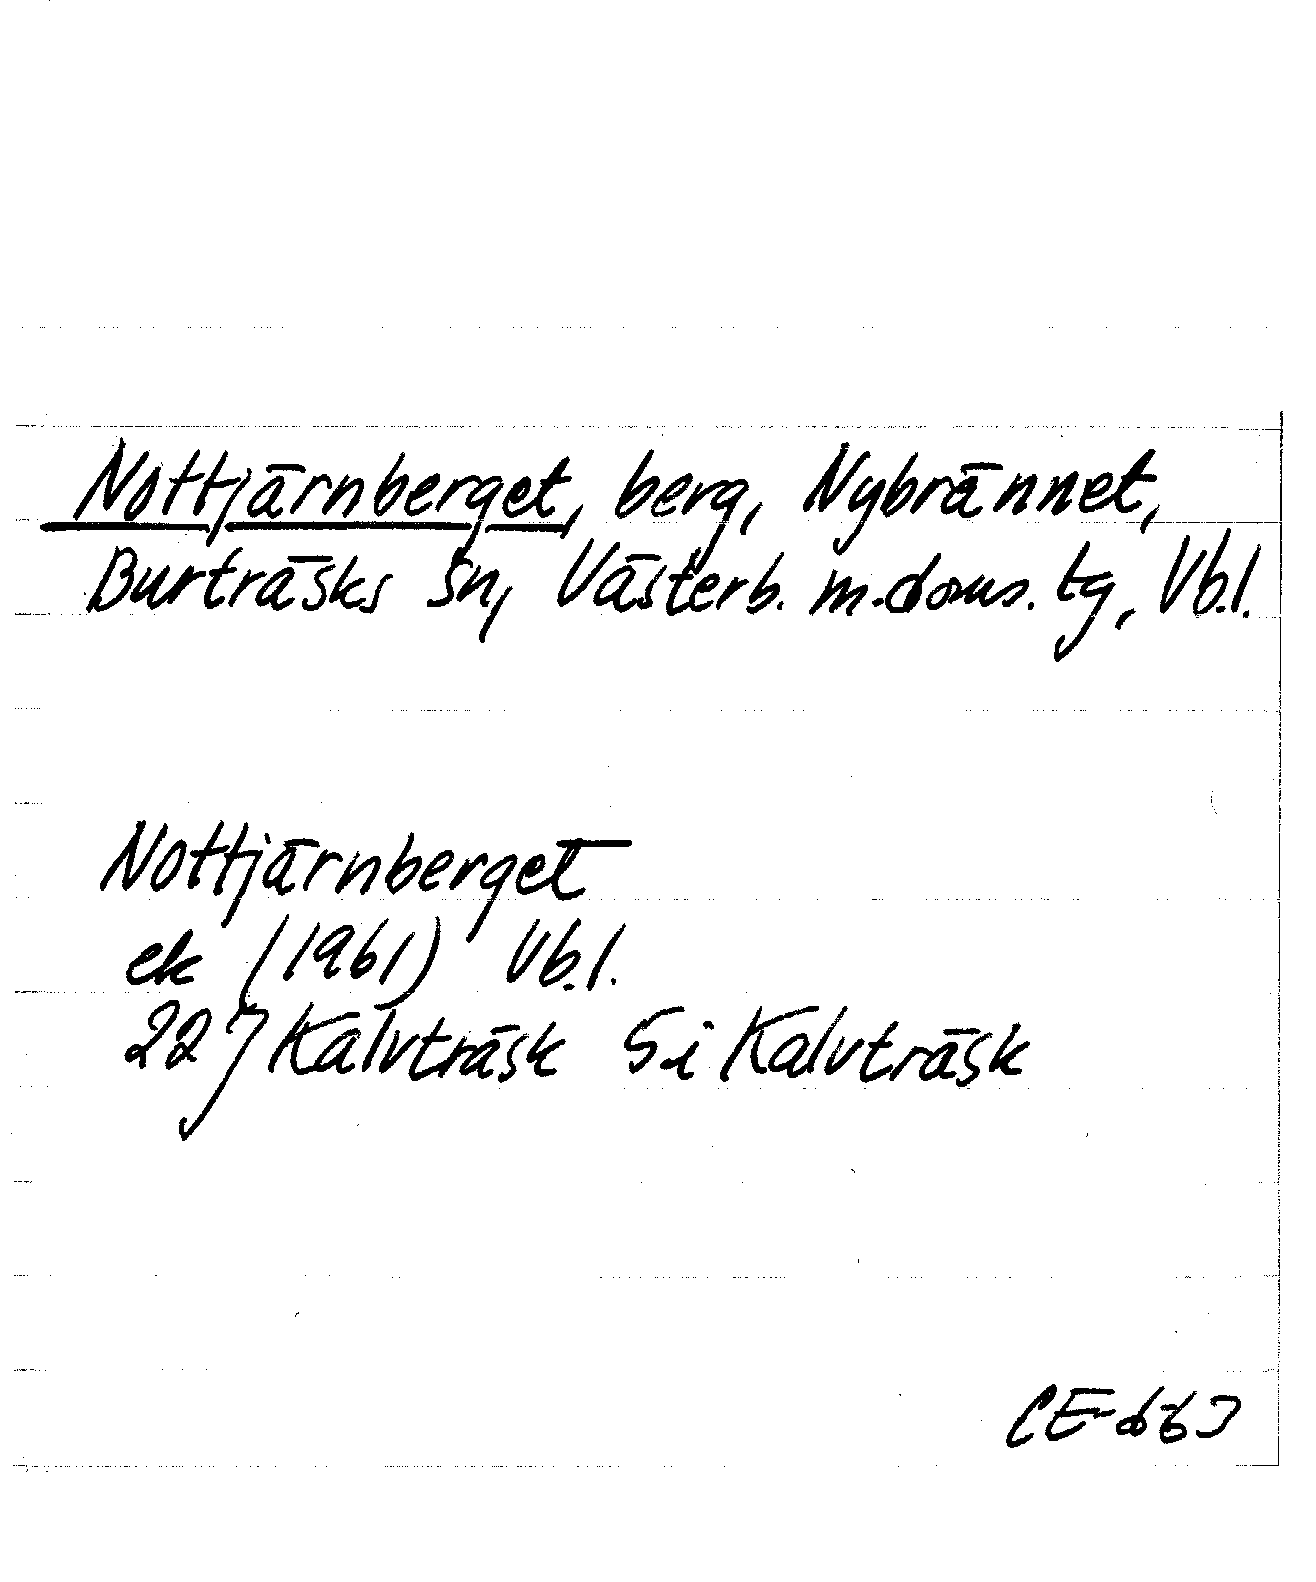 Nottjärnberget, berg, Nybrännet,
Burträsks sn, Västerb. m. doms. tg, Vb.l.
Nottjärnberget
ek (1961) Vb.l.
22 J Kalvträsk 5 i Kalvträsk